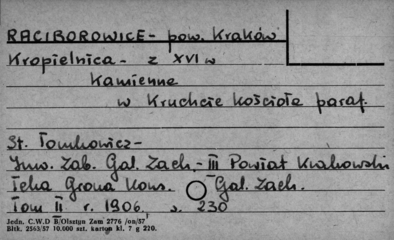 RACIBOROWICE - pow. Kraków
Kropielnica - z XVI w
Kamienne
w Kruchcie Kościoła paraf.
St. Tomkowicz -
Inw. Zab. Gal. Zach. - III Powiat Krakowski
Teka Grona Kons. Gal. Zach.
Tom II r. 1906. s. 230
Jedn. C.W.D B/Olsztyn Zam 2776 /on/57
Bltk. 2563/57 10.000 szt. karton kl. 7 g 220.